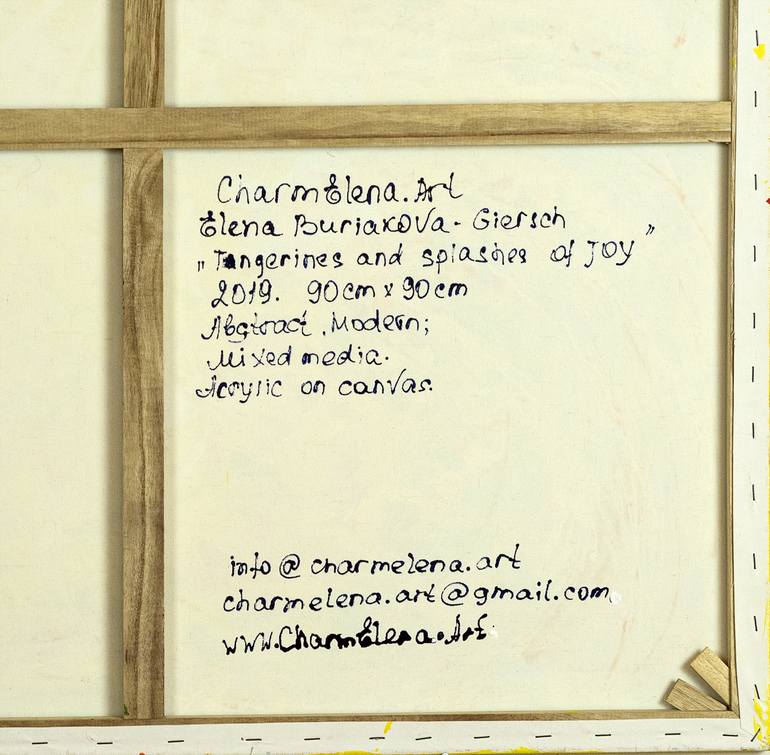 CharmElena.Art
Elena Buriakova-Giersch
„Tangerines and splashes of JOY"
2019. 90cm x 90cm
Abstract, Modern;
Mixed media.
Acrylic on canvas.
info@charmelena.art
charmelena.art@gmail.com
www.CharmElena.Art